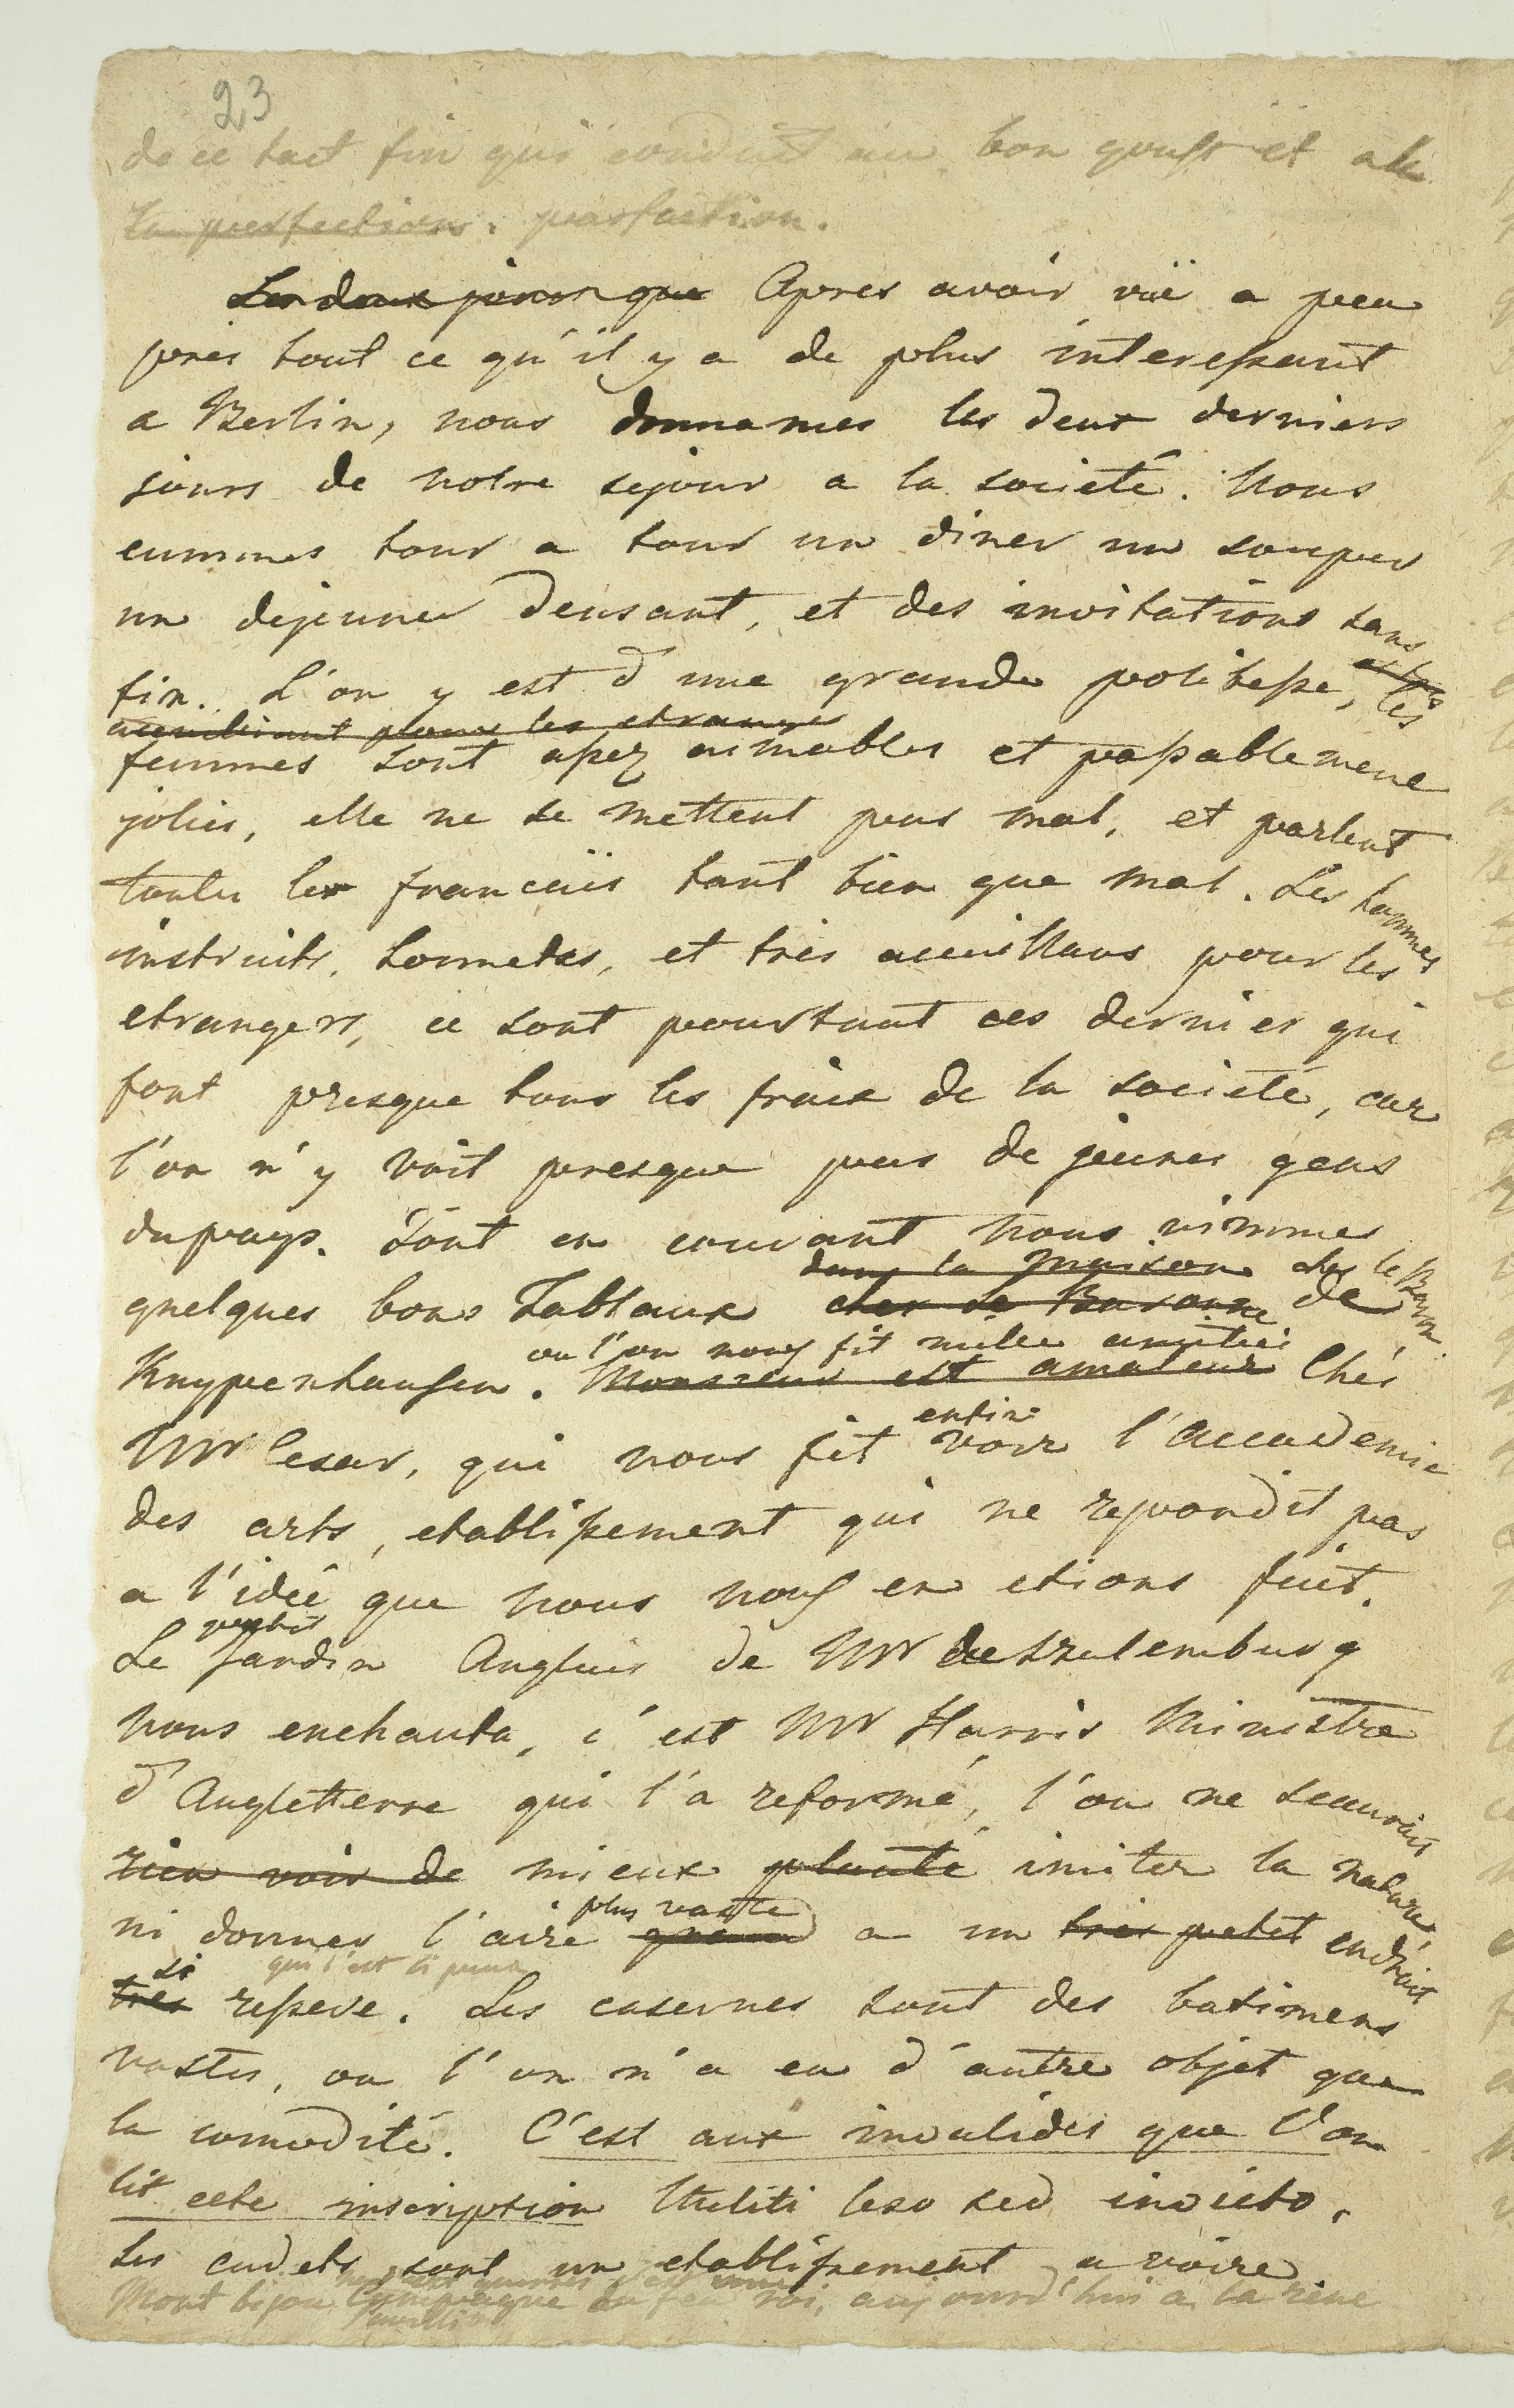 23
de ce tact fin qui conduit au bon goust et a la
la perfection. parfaction.
Les deux jours que Apres avoir vüe a peu
pres tout ce qu'il y a de plus interessant
a Berlin, nous donnames les deux derniers
jours de notre sejour a la societé. Nous
eummes tour a tour un diner un souper
un dejeuner densant, et des invitations sans
fin. L'on y est d'une grande politesse, et tres les
accuëlliant pour les etrangers
femmes sont assez aimables et passablement
jolies, elle ne se mettent pas mal, et parlent
toutes les francaïs tant bien que mal. Les hommes
instruits, honnetes, et tres accuillans pour les
etrangers, ce sont pourtant ces dernier qui
font presque tous les fraix de la societé, car
l'on n'y voit presque pas de jeunes gens
du pays. Tout en courant nous vimmes
dans la maison chez le Baron
quelques bons Tableaux chez le Baronne de
ou l'on nous fit mille amitiés
Knypenhausen. Monsieur est amateur Chés
enfin
Mr Cesar, qui nous fit voir l'accademie
des arts, etablissement qui ne repondit pas
a l'idée que nous nous en etions fait.
petit
Le Jardin Anglais de Mr de
nous enchanta, c'est Mr Harris Ministre
d'Angletterre qui l'a reformé, l'on ne scauroit
rien voir de mieux planté imiter la nature,
plus vaste
ni donner l'aire grand a un tres petit endroit
si qui l'est si peu
tres resseré. Les casernes sont des batimens
vastes, ou l'on n'a eu d'autre objet que
la comodité. C'est aux invalides que l'on
lit cete inscription Militi leso sed invicto.
Les cadets sont un etablissement a voire
Mont bijou Campagne du feu roi, aujourd'hui a la reine